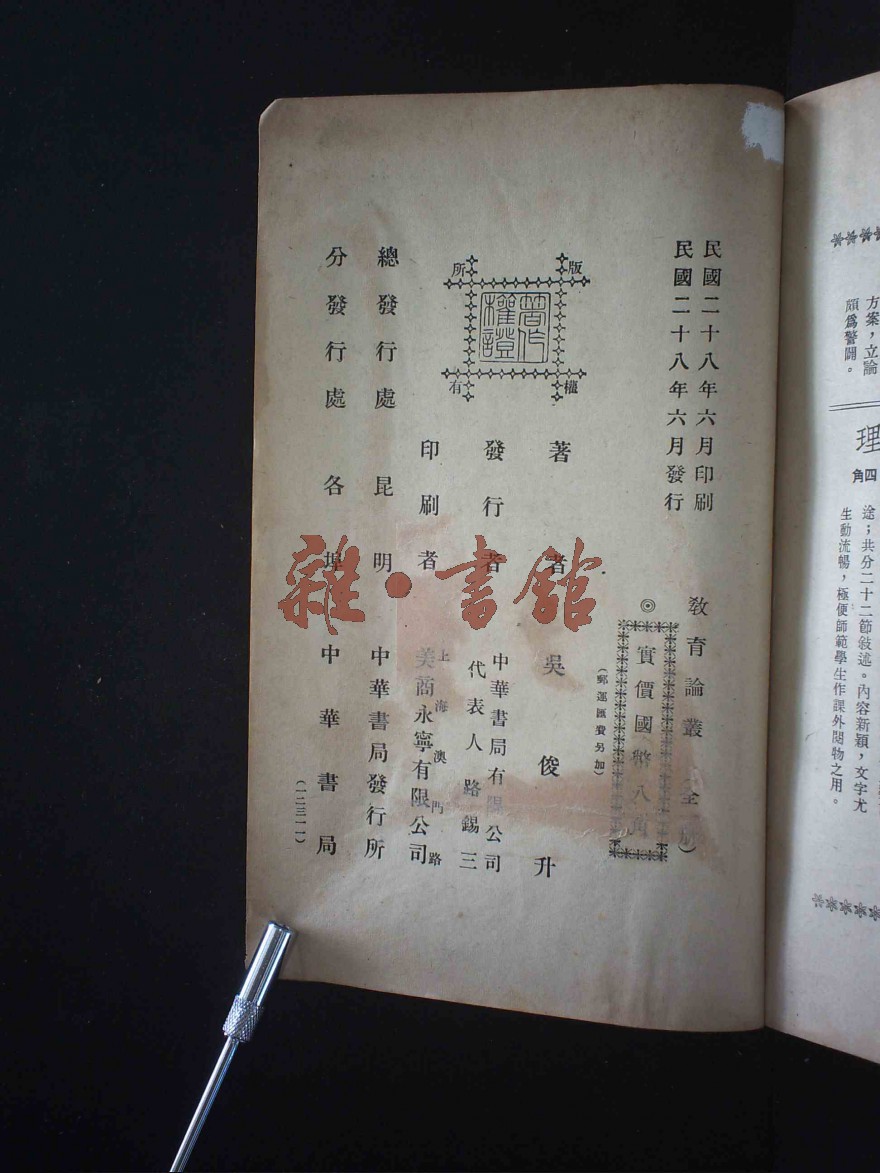 民國二十八年六月印刷
民國二十八年六月發行
教育論叢（全 冊）
◎
實價國幣八角
（郵運匯費另加）
版權所有
著作權證
著者 吳俊升
發行者 中華書局有限公司
代表人路錫三
印刷者 上海澳門路
美商永寧有限公司
總發行處昆明 中華書局發行所
分發行處各埠 中華書局
（一二三一一）
雜·書館
方案，立論
頗爲警闢。
理
四角
途；共分二十二節敍述。內容新穎，文字尤
生動流暢，極便師範學生作課外閱物之用。